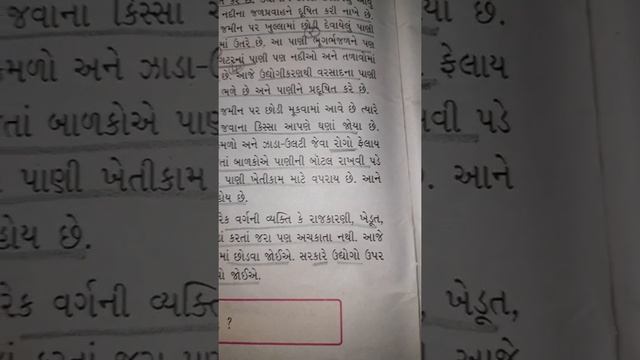 નદીના જળપ્રવાહને દૂષિત કરી નાખે છે.
જમીન પર ખુલ્લામાં છોડી દેવાયેલું પાણી
માં ઉતરે છે. આ પાણી ભૂગર્ભજળને પણ
ગટરનાં પાણી પણ નદીઓ અને તળાવોમાં
છે. આજે ઉદ્યોગીકરણથી વરસાદના પાણી
ભળે છે અને પાણીને પ્રદૂષિત કરે છે.
જમીન પર છોડી મૂકવામાં આવે છે ત્યારે
જવાના કિસ્સા આપણે ઘણાં જોયા છે.
મળો અને ઝાડા-ઉલટી જેવા રોગો ફેલાય
તાં બાળકોએ પાણીની બોટલ રાખવી પડે
પાણી ખેતીકામ માટે વપરાય છે. આને
હોય છે.
રેક વર્ગની વ્યક્તિ કે રાજકારણી, ખેડૂત,
કરતાં જરા પણ અચકાતા નથી. આજે
માં છોડવા જોઈએ. સરકારે ઉદ્યોગો ઉપર
જોઈએ.
?